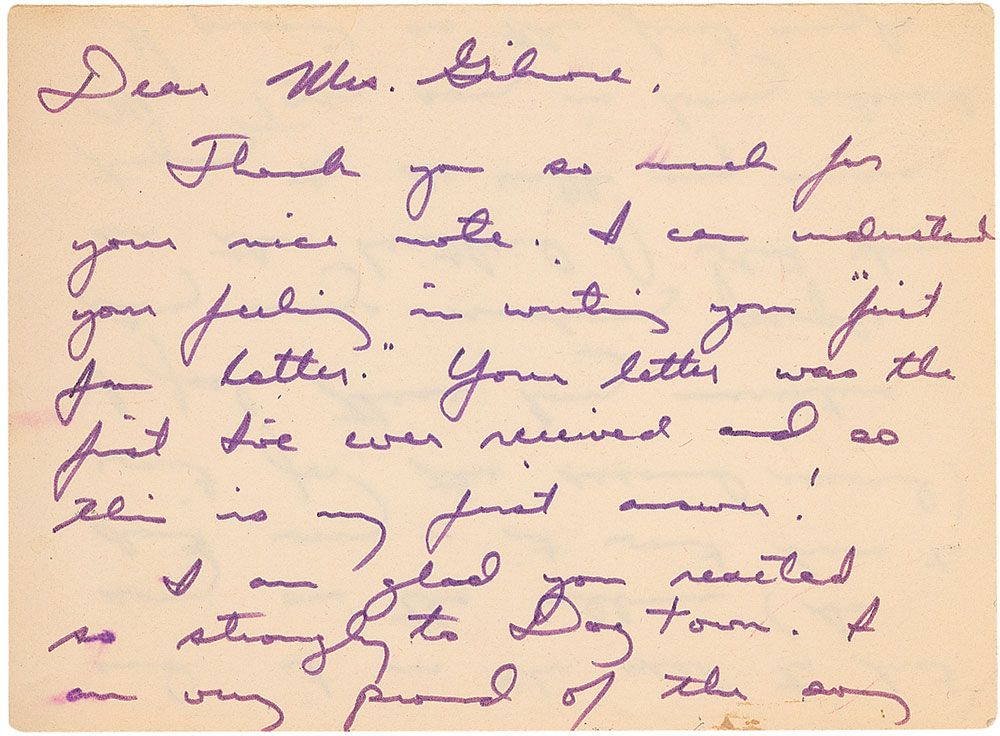 Dear Mrs. Gilmore,
Thank you so much for
your nice note. I can understand
your feeling in writing your "first
fan letter." Your letter was the
first I've ever received and so
this is my first answer!
I am glad you reacted
so strongly to Dog Town. I
am very proud of the song